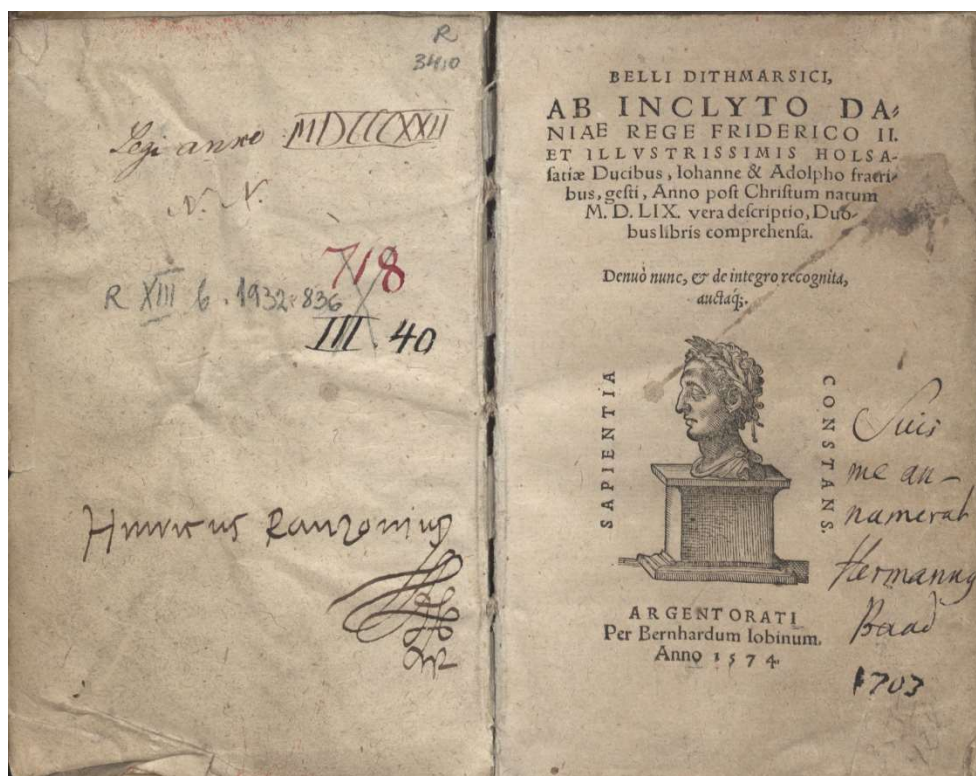 R
3410
Legi anno MDCCCXXII
N. N.
718
R XIII b. 1932. 836
III. 40
Hinricus Ranzovius
BELLI DITHMARSICI,
AB INCLYTO DA⸗
NIAE REGE FRIDERICO II.
ET ILLVSTRISSIMIS HOLSA-
ſatiæ Ducibus, Iohanne & Adolpho fratri⸗
bus, geſti, Anno poſt Chriſtum natum
M. D. LIX. vera deſcriptio, Duo-
bus libris comprehenſa.
Denuò nunc, & de integro recognita,
auctaq́;.
SAPIENTIA
CONSTANS.
Suis
me an-
numerat
Hermannus
Baad
1703
ARGENTORATI
Per Bernhardum Iobinum.
Anno 1574.